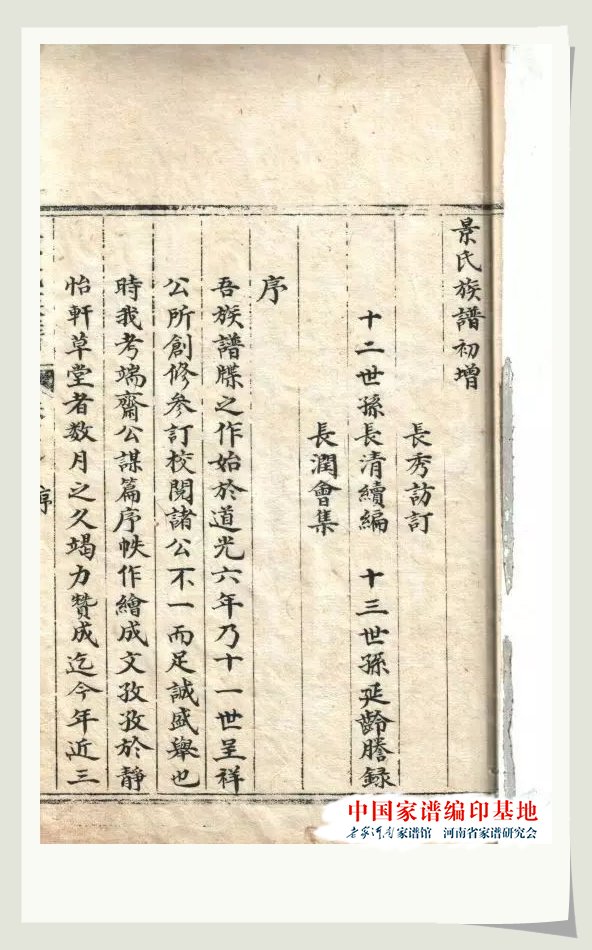 景氏族譜初增
長秀訪訂
十二世孫長清續編 十三世孫延齡謄録
長潤會集
序
吾族譜牒之作始於道光六年乃十一世呈祥
公所創修參訂校閲諸公不一而足誠盛舉也
時我考端齋公謀篇序帙作繪成文孜孜於靜
怡軒草堂者数月之久竭力贊成迄今年近三
序
中国家谱编印基地
老家河南家谱馆 河南省家谱研究会